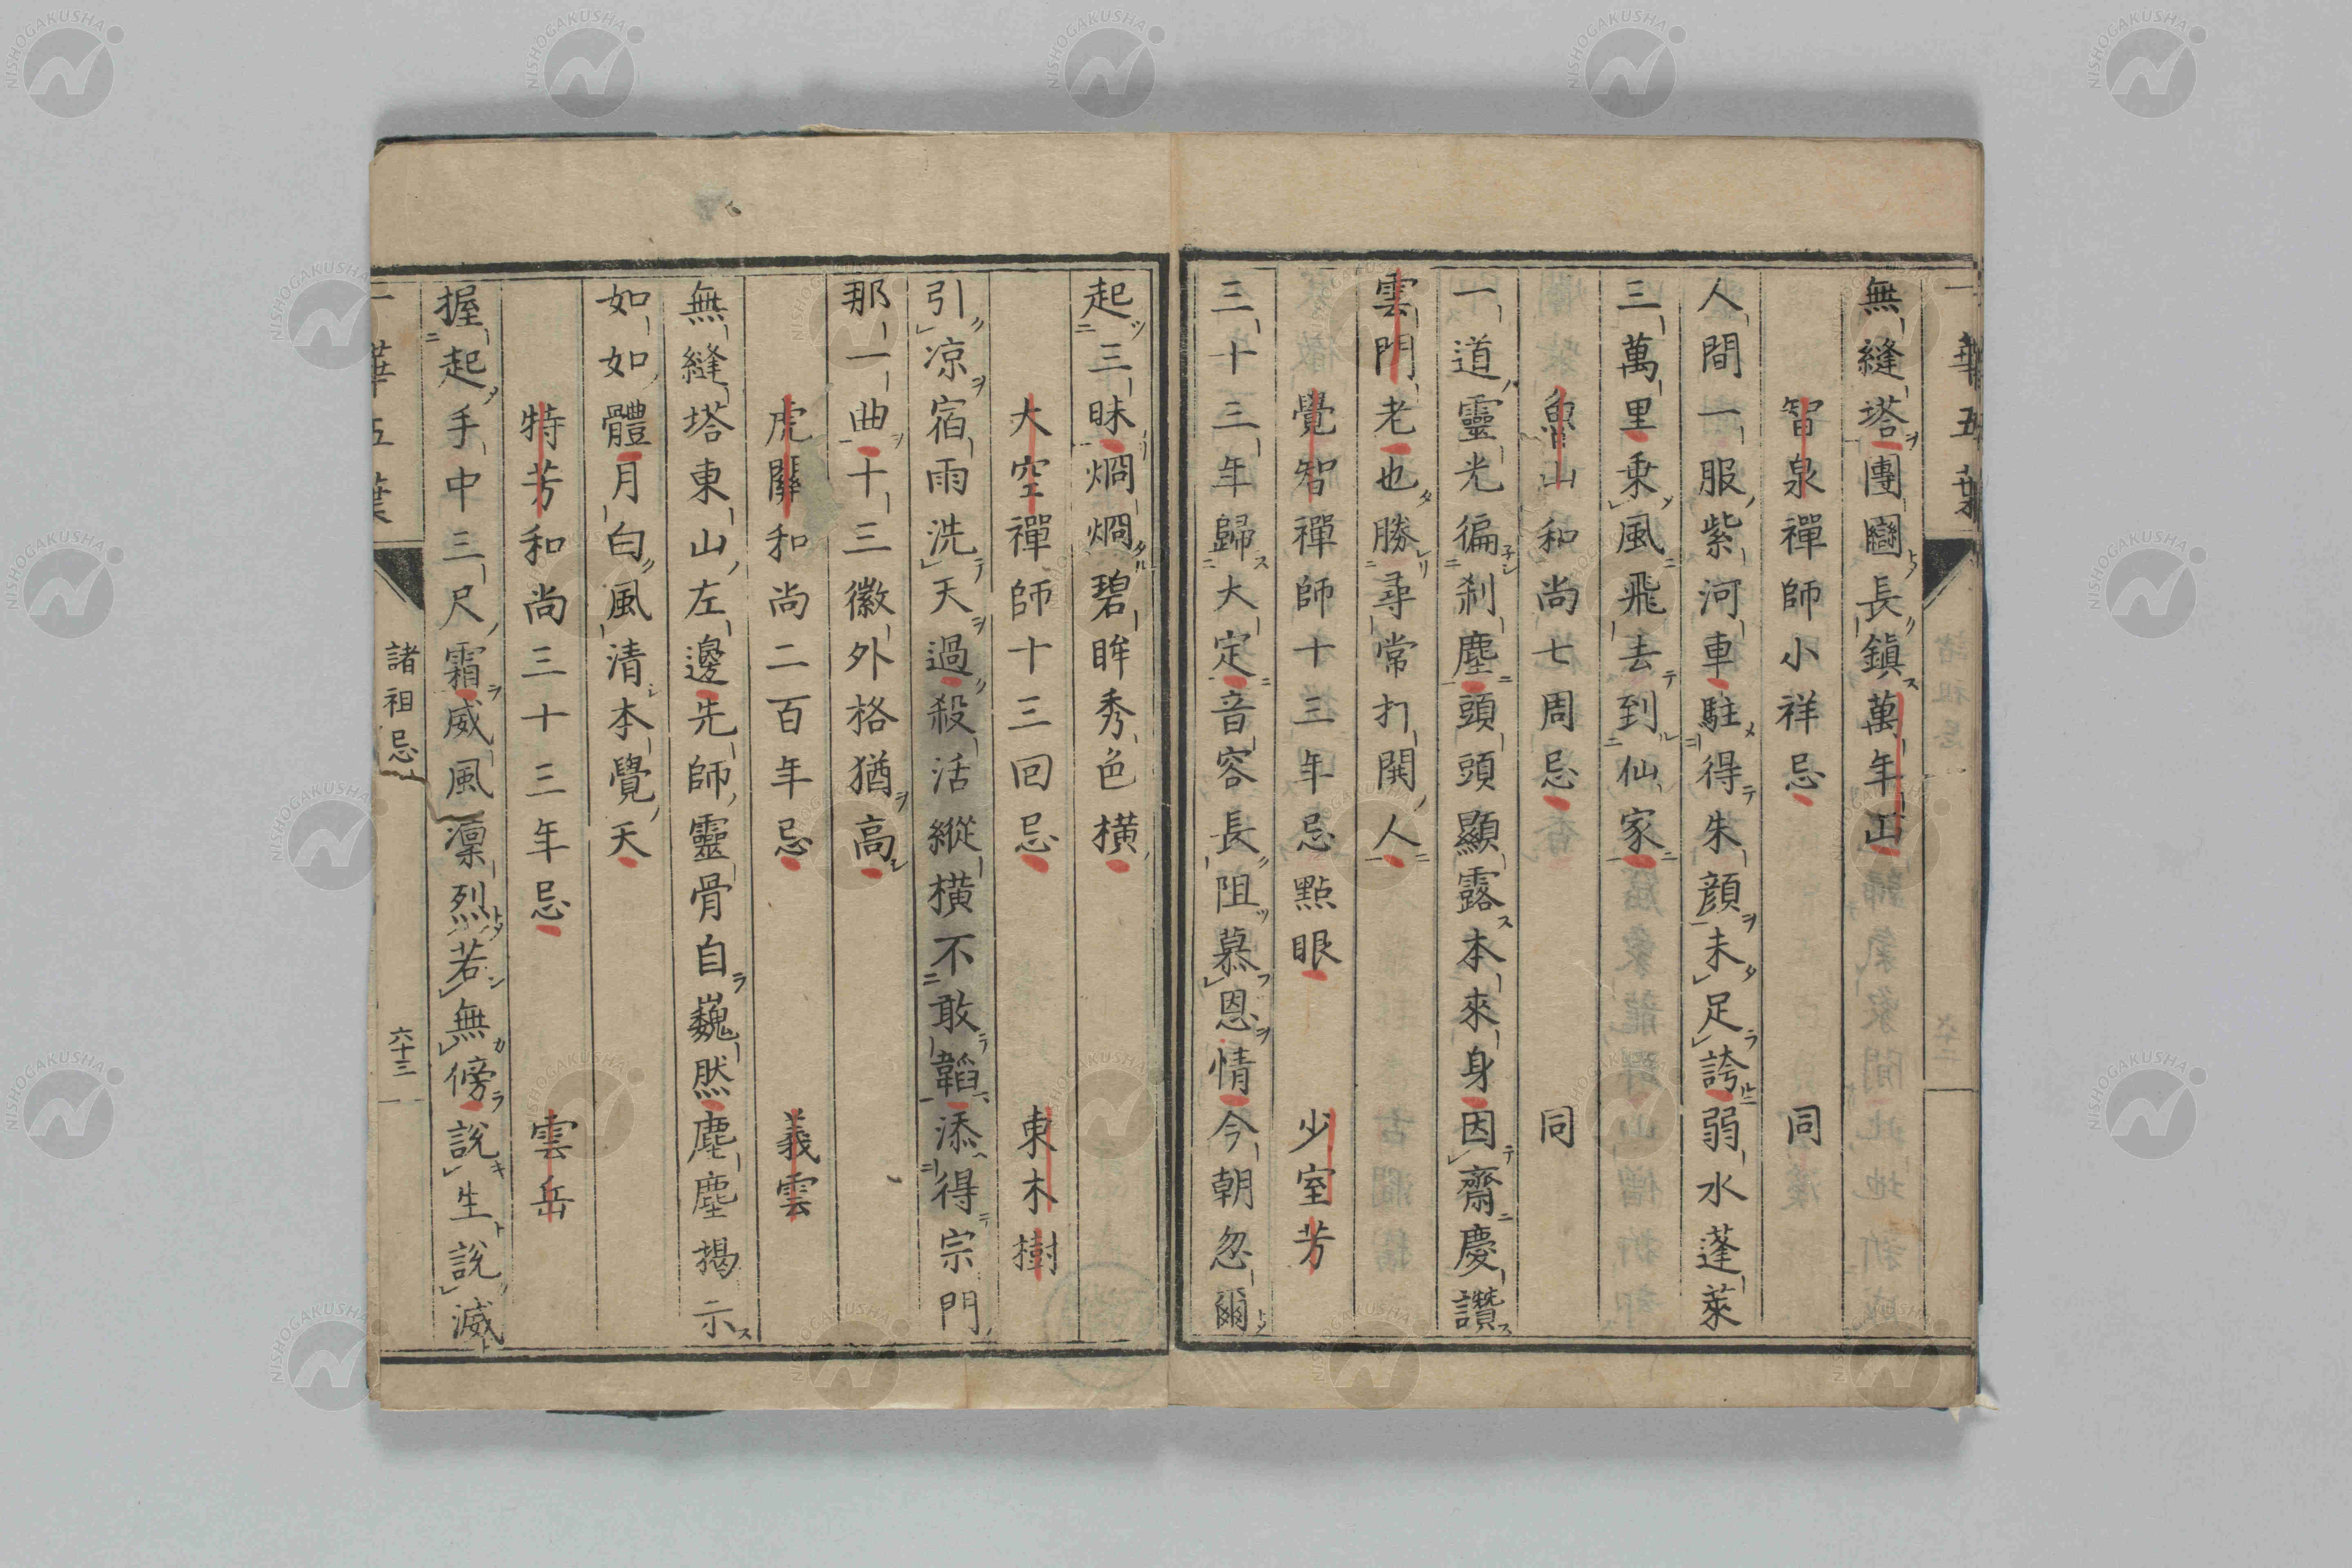 一華五葉
無縫塔團圝長鎮萬年山
智泉禪師小祥忌 同
人間一服紫河車駐得朱顔未足誇弱水蓬萊
三萬里乗風飛去到仙家
魯山和尚七周忌 同
一道靈光徧刹塵頭頭顯露本來身因齋慶讚
雲門老也勝尋常打開人
覺智禪師十三年忌點眼 少室芳
三十三年歸大定音容長阻慕恩情今朝忽爾
起三昧烱烱碧眸秀色橫
大空禪師十三回忌 東木樹
引凉宿雨洗天過殺活縱橫不敢韜添得宗門
那一曲十三徽外格猶高
虎關和尚二百年忌 義雲
無縫塔東山左邊先師靈骨自巍然塵塵揭示
如如體月白風清本覺天
特芳和尚三十三年忌 雲岳
握起手中三尺霜威風凛烈若無傍說生說滅
一華五葉 諸祖忌 六十三
NISHOGAKUSHA